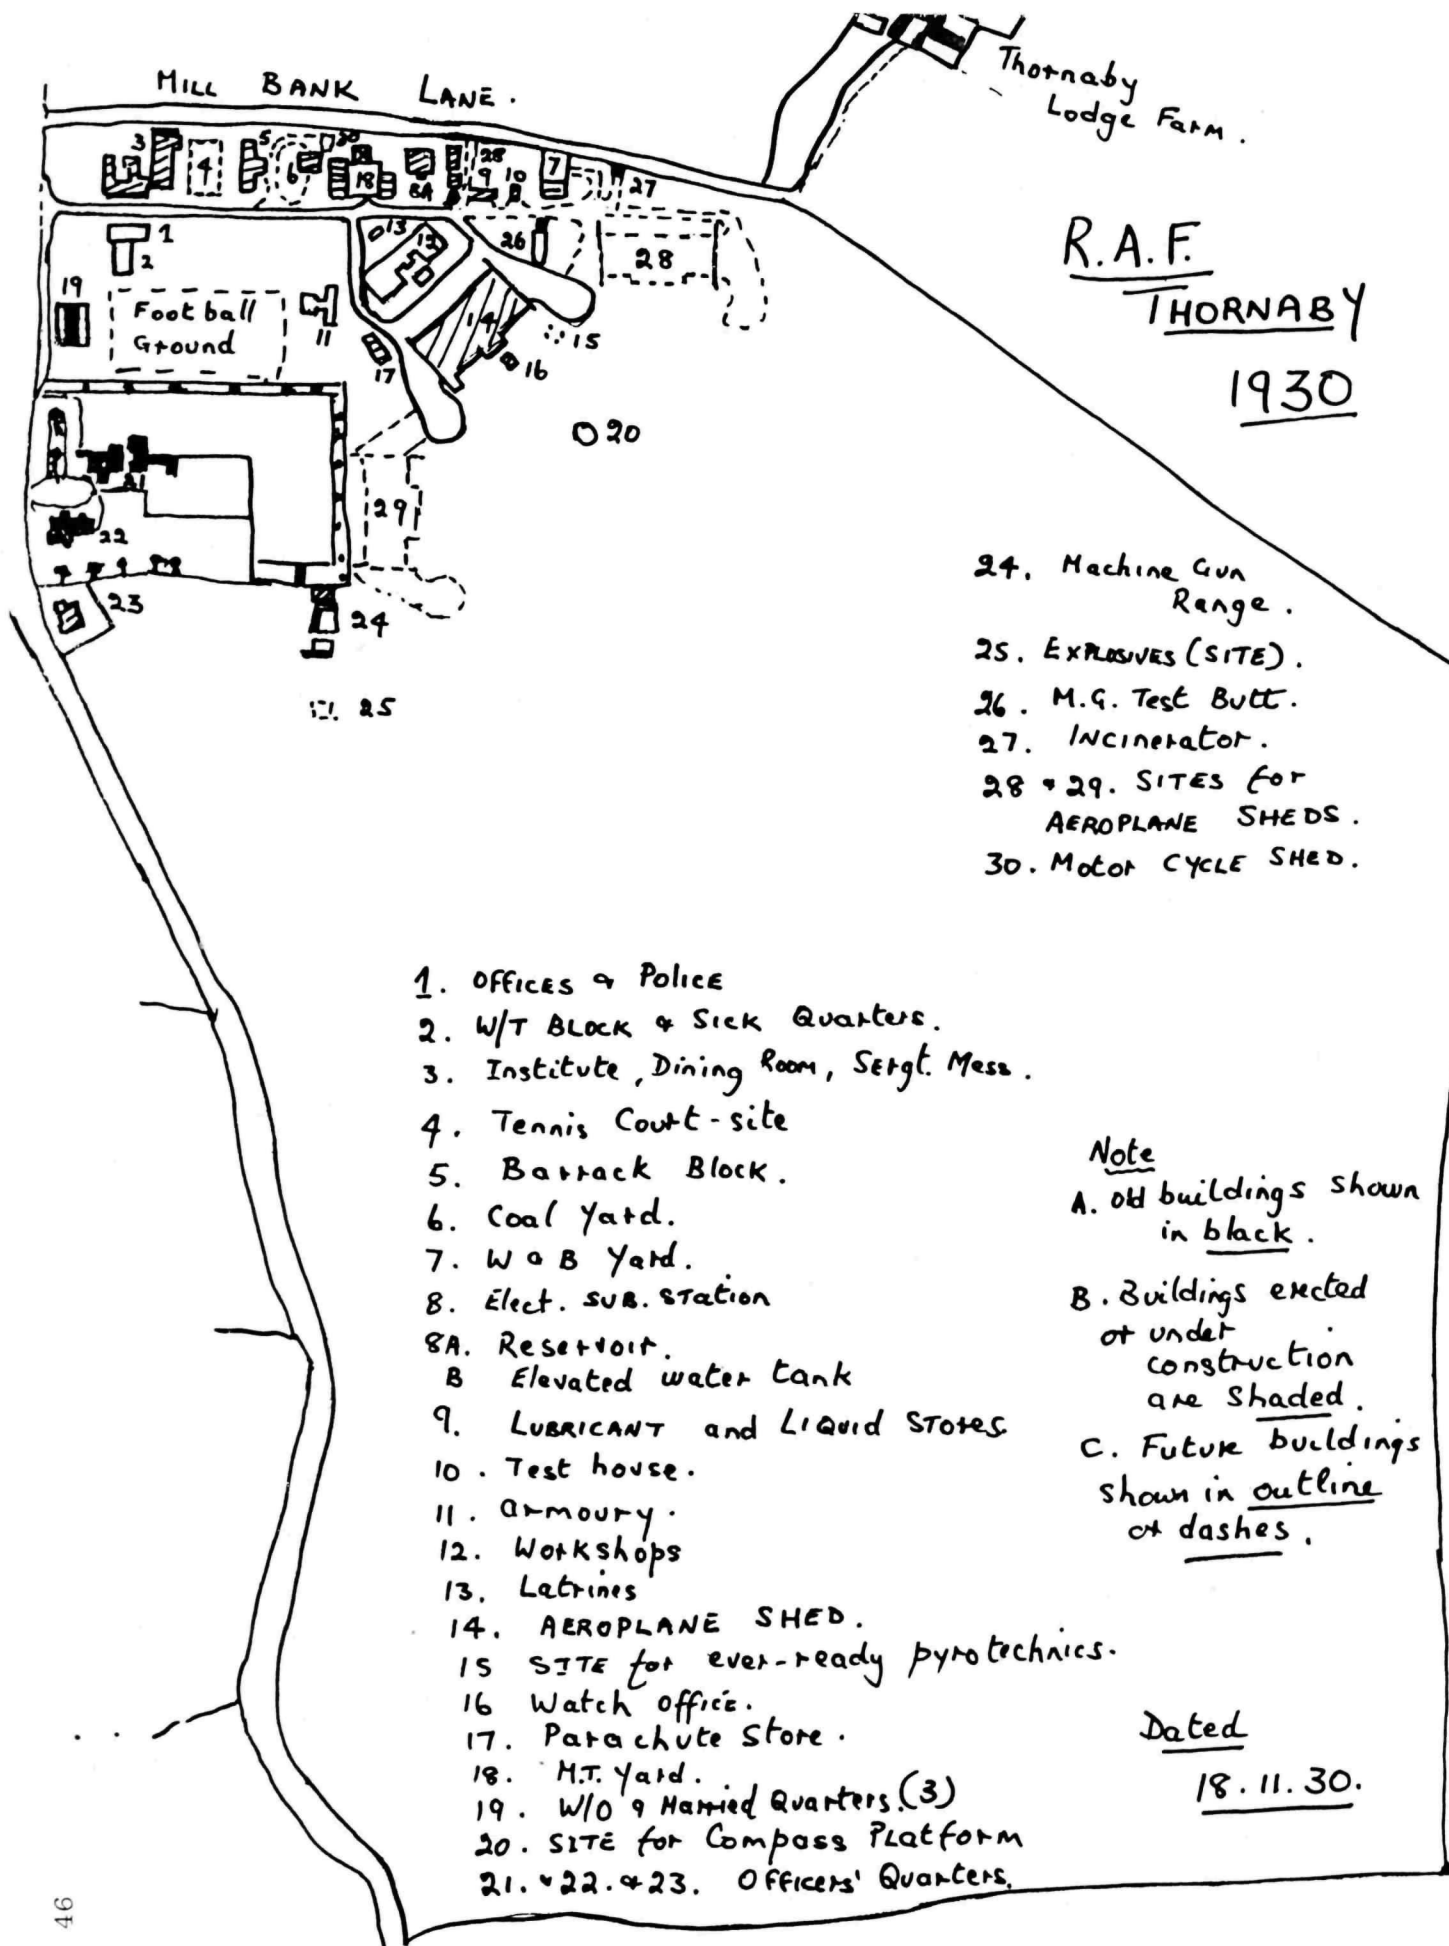 MILL BANK LANE.
Thornaby
Lodge Farm.
R.A.F.
THORNABY
1930
3
4
5
6
30
18
8A
28
9
10
7
27
1
2
13
12
26
28
19
Football
Ground
11
14
15
17
16
20
29
21
22
23
24
25
24. Machine Gun
Range.
25. EXPLOSIVES (SITE).
26. M.G. Test Butt.
27. Incinerator.
28 & 29. SITES for
AEROPLANE SHEDS.
30. Motor CYCLE SHED.
1. OFFICES & Police
2. W/T BLOCK & Sick Quarters.
3. Institute, Dining Room, Sergt. Mess.
4. Tennis Court-site
5. Barrack Block.
6. Coal Yard.
7. W & B Yard.
8. Elect. SUB. STation
8A. Reservoir.
B Elevated water tank
9. LUBRICANT and LIQUID STORES.
10. Test house.
11. Armoury.
12. Workshops
13. Latrines
14. AEROPLANE SHED.
15 SITE for ever-ready pyrotechnics.
16 Watch office.
17. Parachute Store.
18. M.T. Yard.
19. W/O & Married Quarters.(3)
20. SITE for Compass Platform
21. & 22. & 23. Officers' Quarters.
Note
A. Old buildings shown
in black.
B. Buildings erected
or under
construction
are shaded.
C. Future buildings
shown in outline
or dashes.
Dated
18.11.30.
46